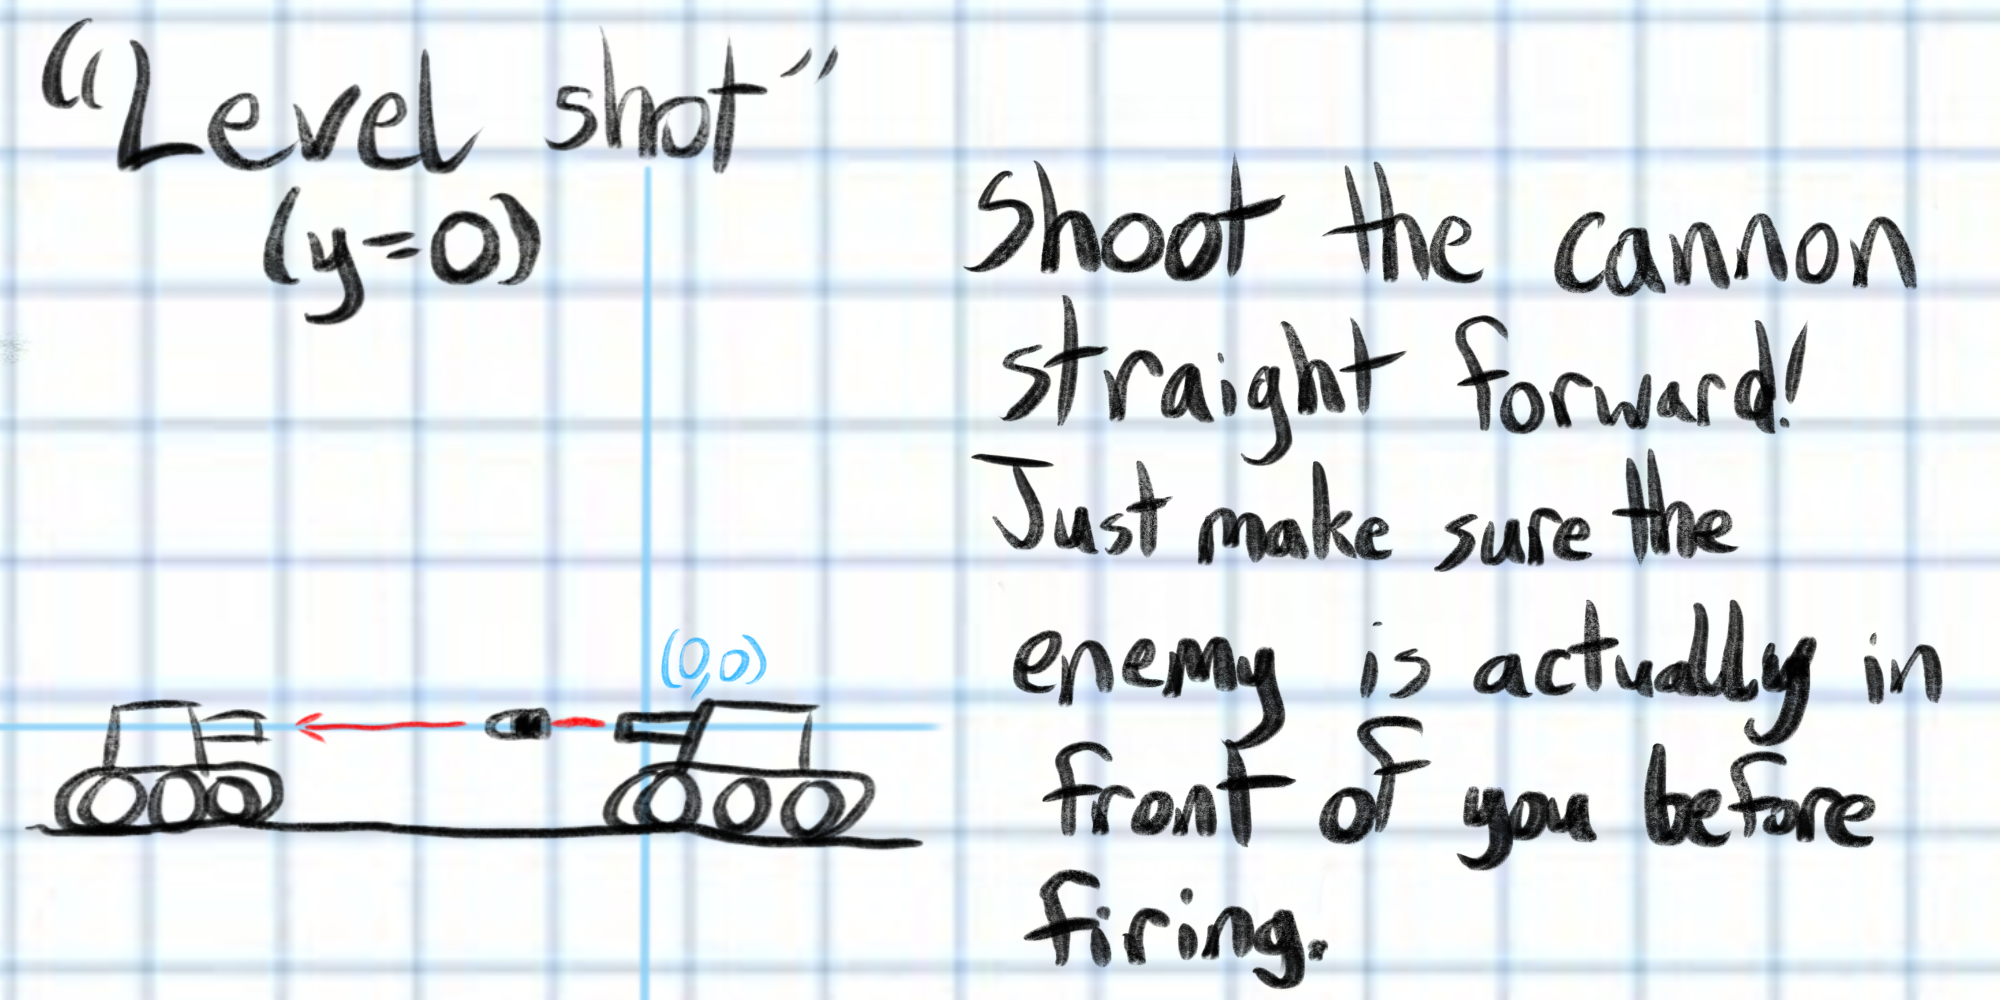 "Level shot"
(y=0)
(0,0)
Shoot the cannon
straight forward!
Just make sure the
enemy is actually in
front of you before
firing.